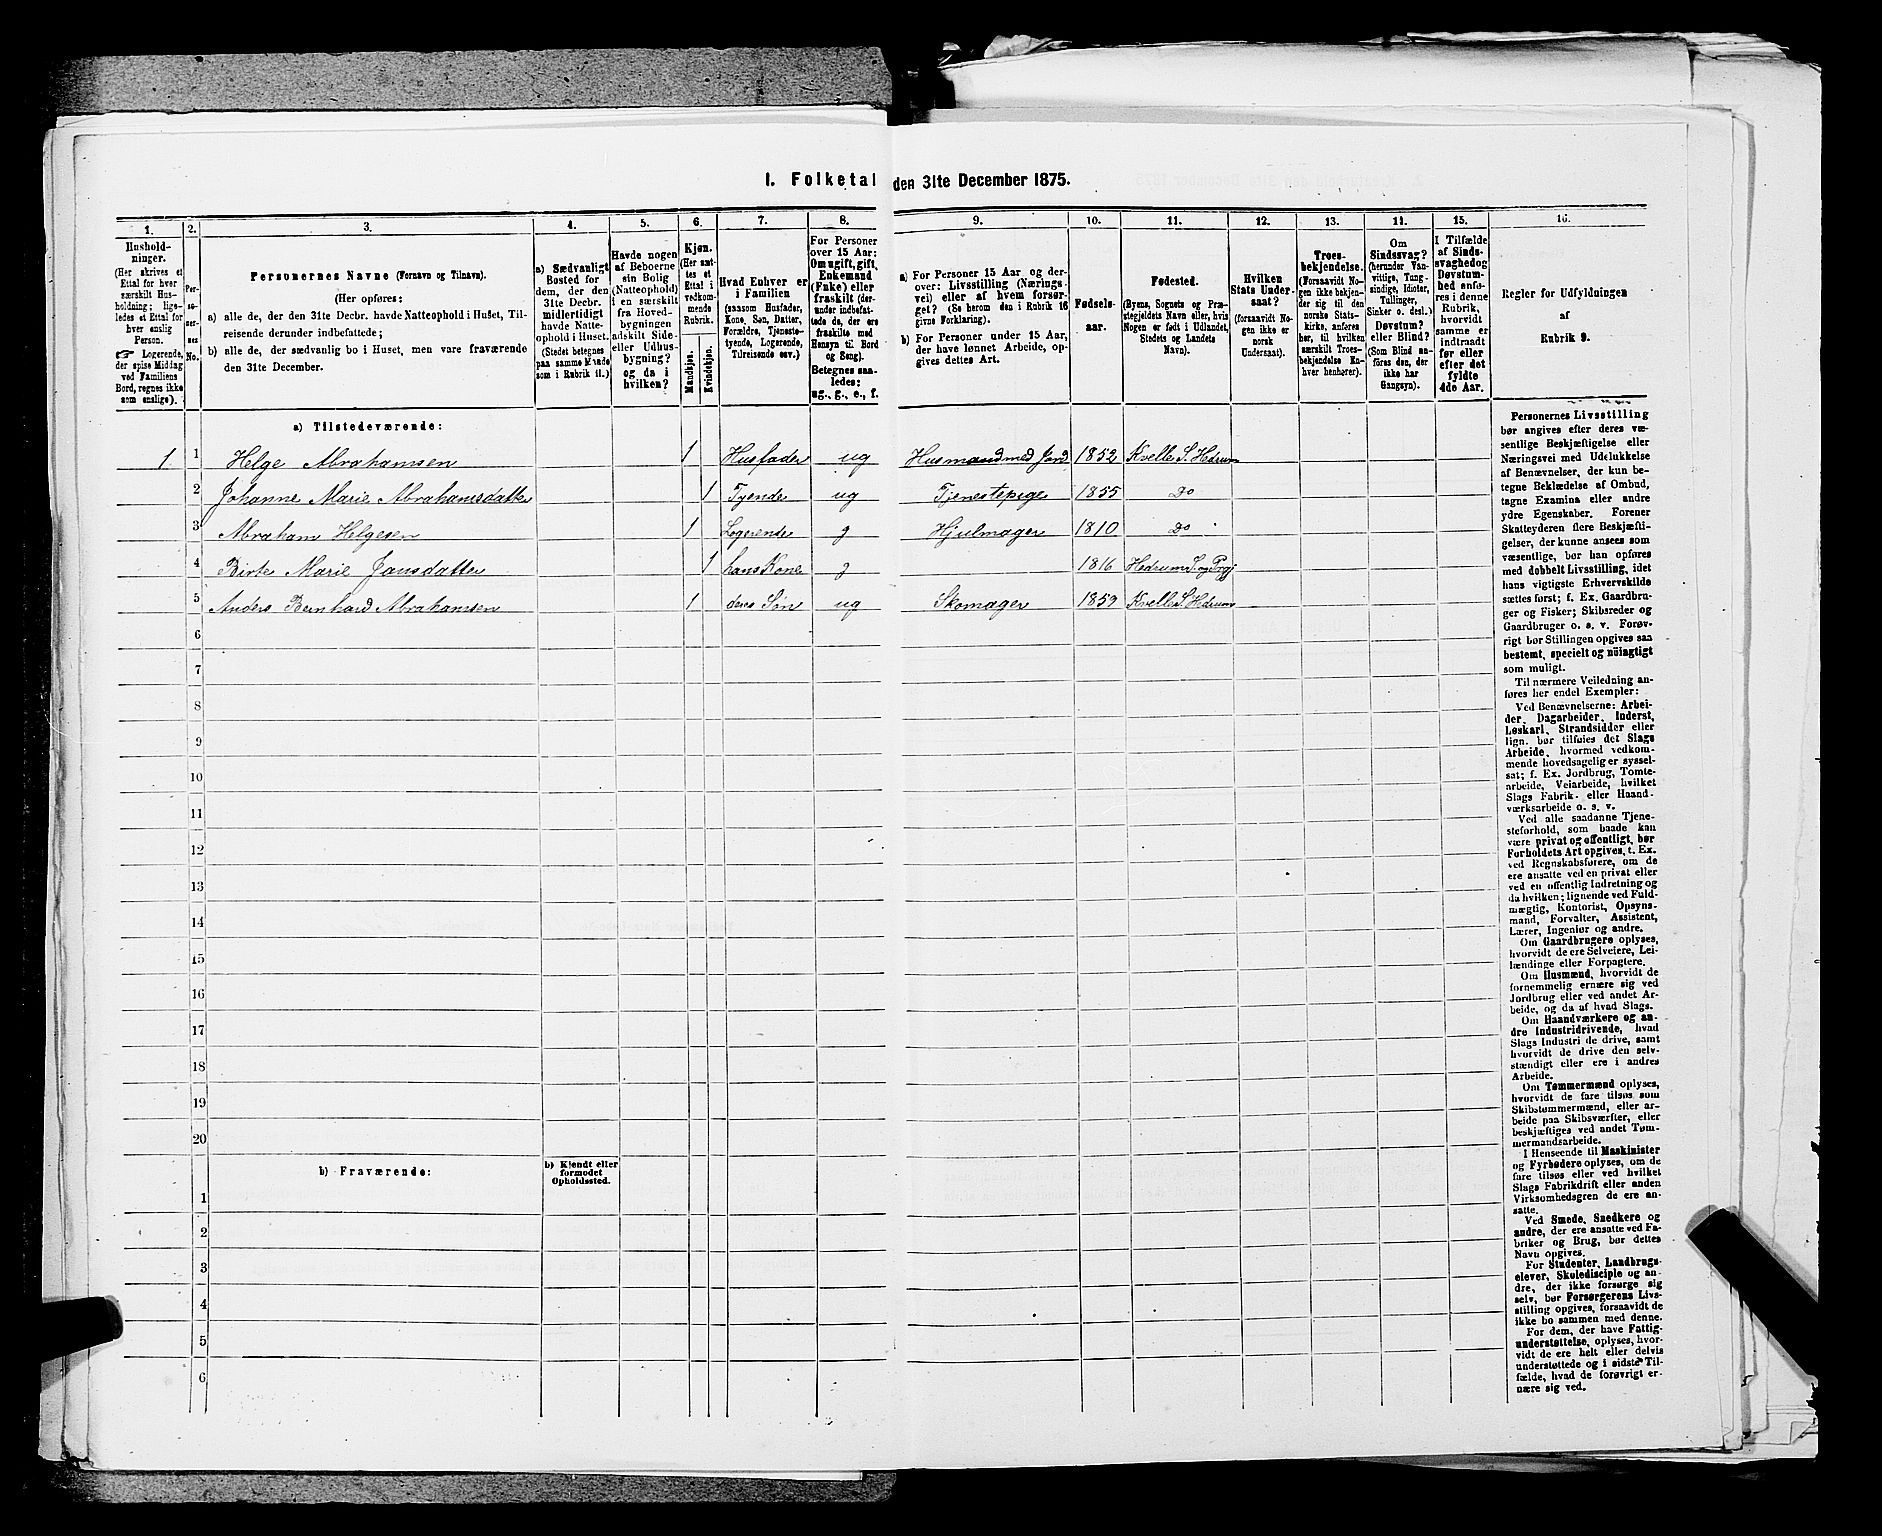 I. Folketal den 31te December 1875.
1.
2.
3.
4.
5.
6.
7.
8.
9.
10.
11.
12.
13.
14.
15.
16.
Hushold-
ninger.
(Her skrives et
Ettal for hver
særskilt Hus-
holdning; lige-
ledes et Ettal for
hver enslig
Person.
☞ Logerende,
der spise Middag
ved Familiens
Bord, regnes ikke
som enslige).
Per-
so-
ner-
nes
No.
Personernes Navne (Fornavn og Tilnavn).
(Her opføres:
a) alle de, der den 31te Decbr. havde Natteophold i Huset, Til-
reisende derunder indbefattede;
b) alle de, der sædvanlig bo i Huset, men vare fraværende
den 31te December.
a) Sædvanligt
Bosted for
dem, der den
31te Decbr.
midlertidigt
havde Natte-
ophold i Huset.
(Stedet betegnes
paa samme Maade
som i Rubrik 11.)
Havde nogen
af Beboerne
sin Bolig
(Natteophold)
i en særskilt
fra Hoved-
bygningen
adskilt Side-
eller Udhus-
bygning?
og da i
hvilken?
Kjøn.
(Her sæt-
tes et
Ettal i
vedkom-
mende
Rubrik.
Mandkjøn.
Kvindekjøn.
Hvad Enhver er
i Familien
(saasom Husfader,
Kone, Søn, Datter,
Forældre, Tjeneste-
tyende, Logerende,
Tilreisende osv.)
For Personer
over 15 Aar:
Om ugift, gift,
Enkemand
(Enke) eller
fraskilt (der-
under indbefat-
tede de, der ere
fraskilte med
Hensyn til Bord
og Seng).
Betegnes saa-
ledes:
ug., g., e., f.
a) For Personer 15 Aar og der-
over: Livsstilling (Nærings-
vei) eller af hvem forsør-
get? (Se herom den i Rubrik 16
givne Forklaring).
b) For Personer under 15 Aar,
der have lønnet Arbeide, op-
gives dettes Art.
Fødsels-
aar.
Fødested.
(Byens, Sognets og Præ-
stegjeldets Navn eller, hvis
Nogen er født i Udlandet,
Stedets og Landets
Navn).
Hvilken
Stats Under-
saat?
(forsaavidt No-
gen ikke er
norsk
Undersaat).
Troes-
bekjendelse.
(Forsaavidt No-
gen ikke bekjen-
der sig til den
norske Stats-
kirke, anføres
her, til hvilken
særskilt Troes-
bekjendelse En-
hver henhører).
Om
Sindssvag?
(herunder Van-
vittige, Tung-
sindige, Idioter,
Tullinger,
Sinker o. desl.)
Døvstum?
eller Blind?
(Som Blind an-
føres den, der
ikke har
Gangsyn).
I Tilfælde
af Sinds-
svaghed og
Døvstum-
hed anfø-
res i denne
Rubrik,
hvorvidt
samme er
indtraadt
før eller
efter det
fyldte
4de Aar.
Regler for Udfyldningen
af
Rubrik 9.
a) Tilstedeværende:
1 1 Helge Abrahamsen 1 Husfader ug Husmand med Jord 1852 Kvelle S. Hedrum
2 Johanne Marie Abrahamsdatter 1 Tyende ug Tjenestepige 1855 Do
3 Abraham Helgesen 1 Logerende g Hjulmager 1810 Do
4 Birte Marie Jansdatter 1 hans Kone g 1816 Hedrum S. og Prgj
5 Anders Bernhard Abrahamsen 1 deres Søn ug Skomager 1859 Kvelle S Hedrum
6
7
8
9
10
11
12
13
14
15
16
17
18
19
20
b) Fraværende:
b) Kjendt eller
formodet
Opholdssted.
1
2
3
4
5
6
Personernes Livsstilling
bør angives efter deres væ-
sentlige Beskjæftigelse eller
Næringsvei med Udelukkelse
af Benævnelser, der kun be-
tegne Beklædelse af Ombud,
tagne Examina eller andre
ydre Egenskaber. Forener
Skatteyderen flere Beskjæfti-
gelser, der kunne ansees som
væsentlige, bør han opføres
med dobbelt Livsstilling, idet
hans vigtigste Erhvervskilde
sættes først; f. Ex. Gaardbru-
ger og Fisker; Skibsreder og
Gaardbruger o. s. v. Forøv-
rigt bør Stillingen opgives saa
bestemt, specielt og nöiagtigt
som muligt.
Til nærmere Veiledning an-
føres her endel Exempler:
Ved Benævnelserne: Arbei-
der, Dagarbeider, Inderst,
Løskarl, Strandsidder eller
lign. bør tilføies det Slags
Arbeide, hvormed vedkom-
mende hovedsagelig er syssel-
sat; f. Ex. Jordbrug, Tomte-
arbeide, Veiarbeide, hvilket
Slags Fabrik- eller Haand-
værksarbeide o. s. v.
Ved alle saadanne Tjene-
steforhold, som baade kan
være privat og offentligt, bør
Forholdets Art opgives, t. Ex.
ved Regnskabsførere, om de
ere ansatte ved en privat eller
ved en offentlig Indretning og
da hvilken; lignende ved Fuld-
mægtig, Kontorist, Opsyns-
mand, Forvalter, Assistent,
Lærer, Ingeniør og andre.
Om Gaardbrugere oplyses,
hvorvidt de ere Selveiere, Lei-
lændinge eller Forpagtere.
Om Husmænd, hvorvidt de
fornemmelig ernære sig ved
Jordbrug eller ved andet Ar-
beide, og da af hvad Slags.
Om Haandværkere og an-
dre Industridrivende, hvad
Slags Industri de drive, samt
hvorvidt de drive den selv-
stændigt eller ere i andres
Arbeide.
Om Tømmermænd oplyses,
hvorvidt de fare tilsøs som
Skibstømmermænd, eller ar-
beide paa Skibsværfter, eller
beskjæftiges ved andet Tøm-
mermandsarbeide.
I Henseende til Maskinister
og Fyrbødere oplyses, om de
fare tilsøs eller ved hvilket
Slags Fabrikdrift eller anden
Virksomhedsgren de ere an-
satte.
Ved Smede, Snedkere og
andre, der ere ansatte ved Fa-
briker og Brug, bør dettes
Navn opgives.
For Studenter, Landbrugs-
elever, Skoledisciple og an-
dre, der ikke forsørge sig
selv, bør Forsørgerens Livs-
stilling opgives, forsaavidt de
ikke bo sammen med denne.
For dem, der have Fattig-
understøttelse, oplyses, hvor-
vidt de ere helt eller delvis
understøttede og i sidste Til-
fælde, hvad de forøvrigt er-
nære sig ved.